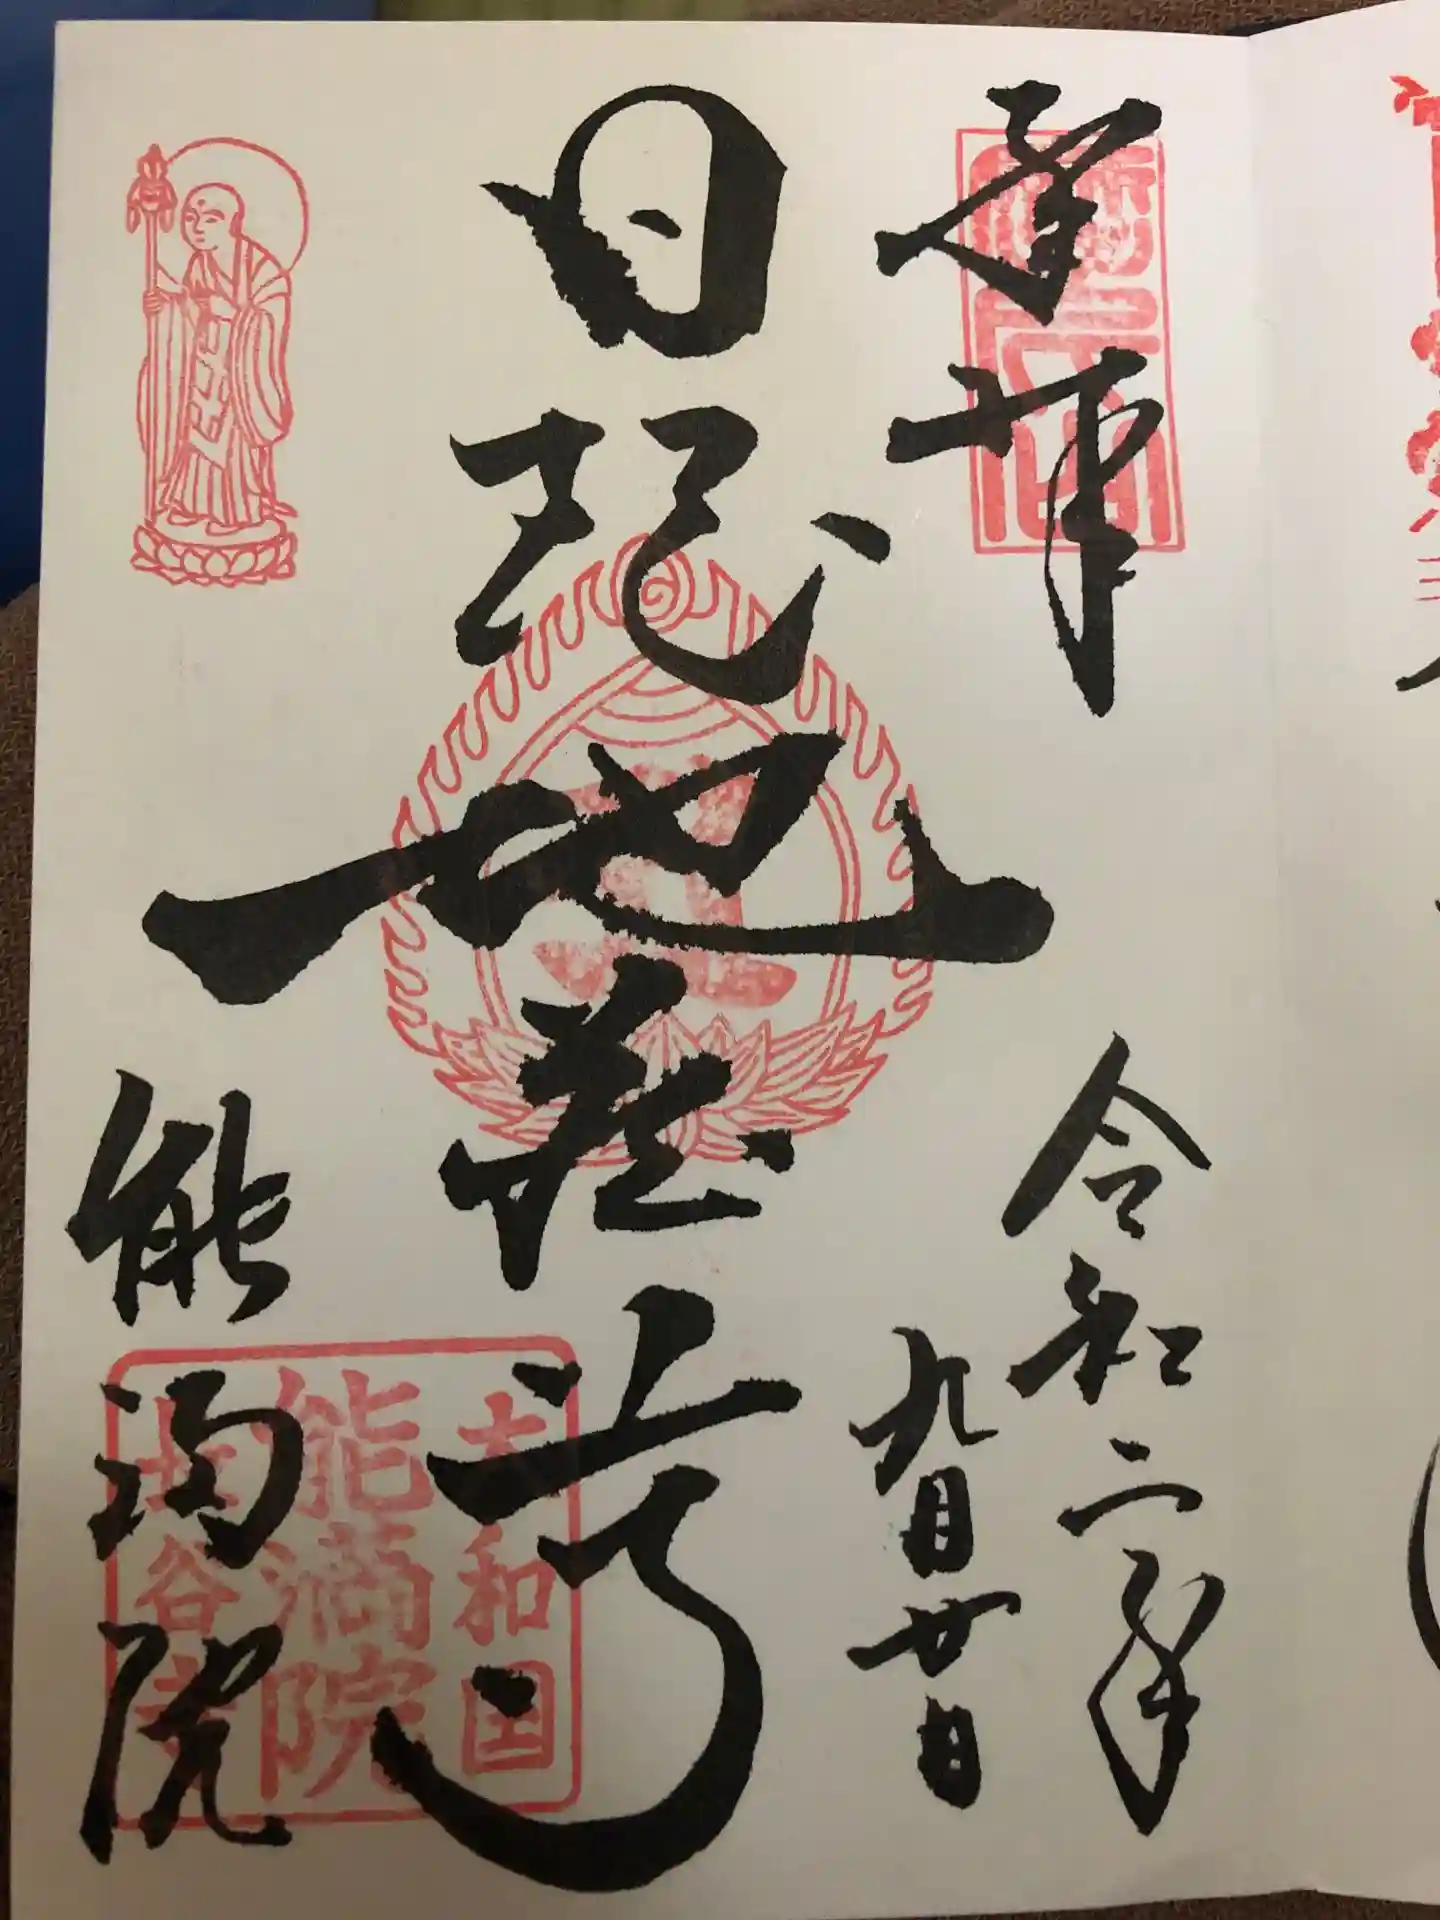 奉拝
令和二年
九月廿日
日限地蔵尊
能満院
大和国
能満院
長谷寺